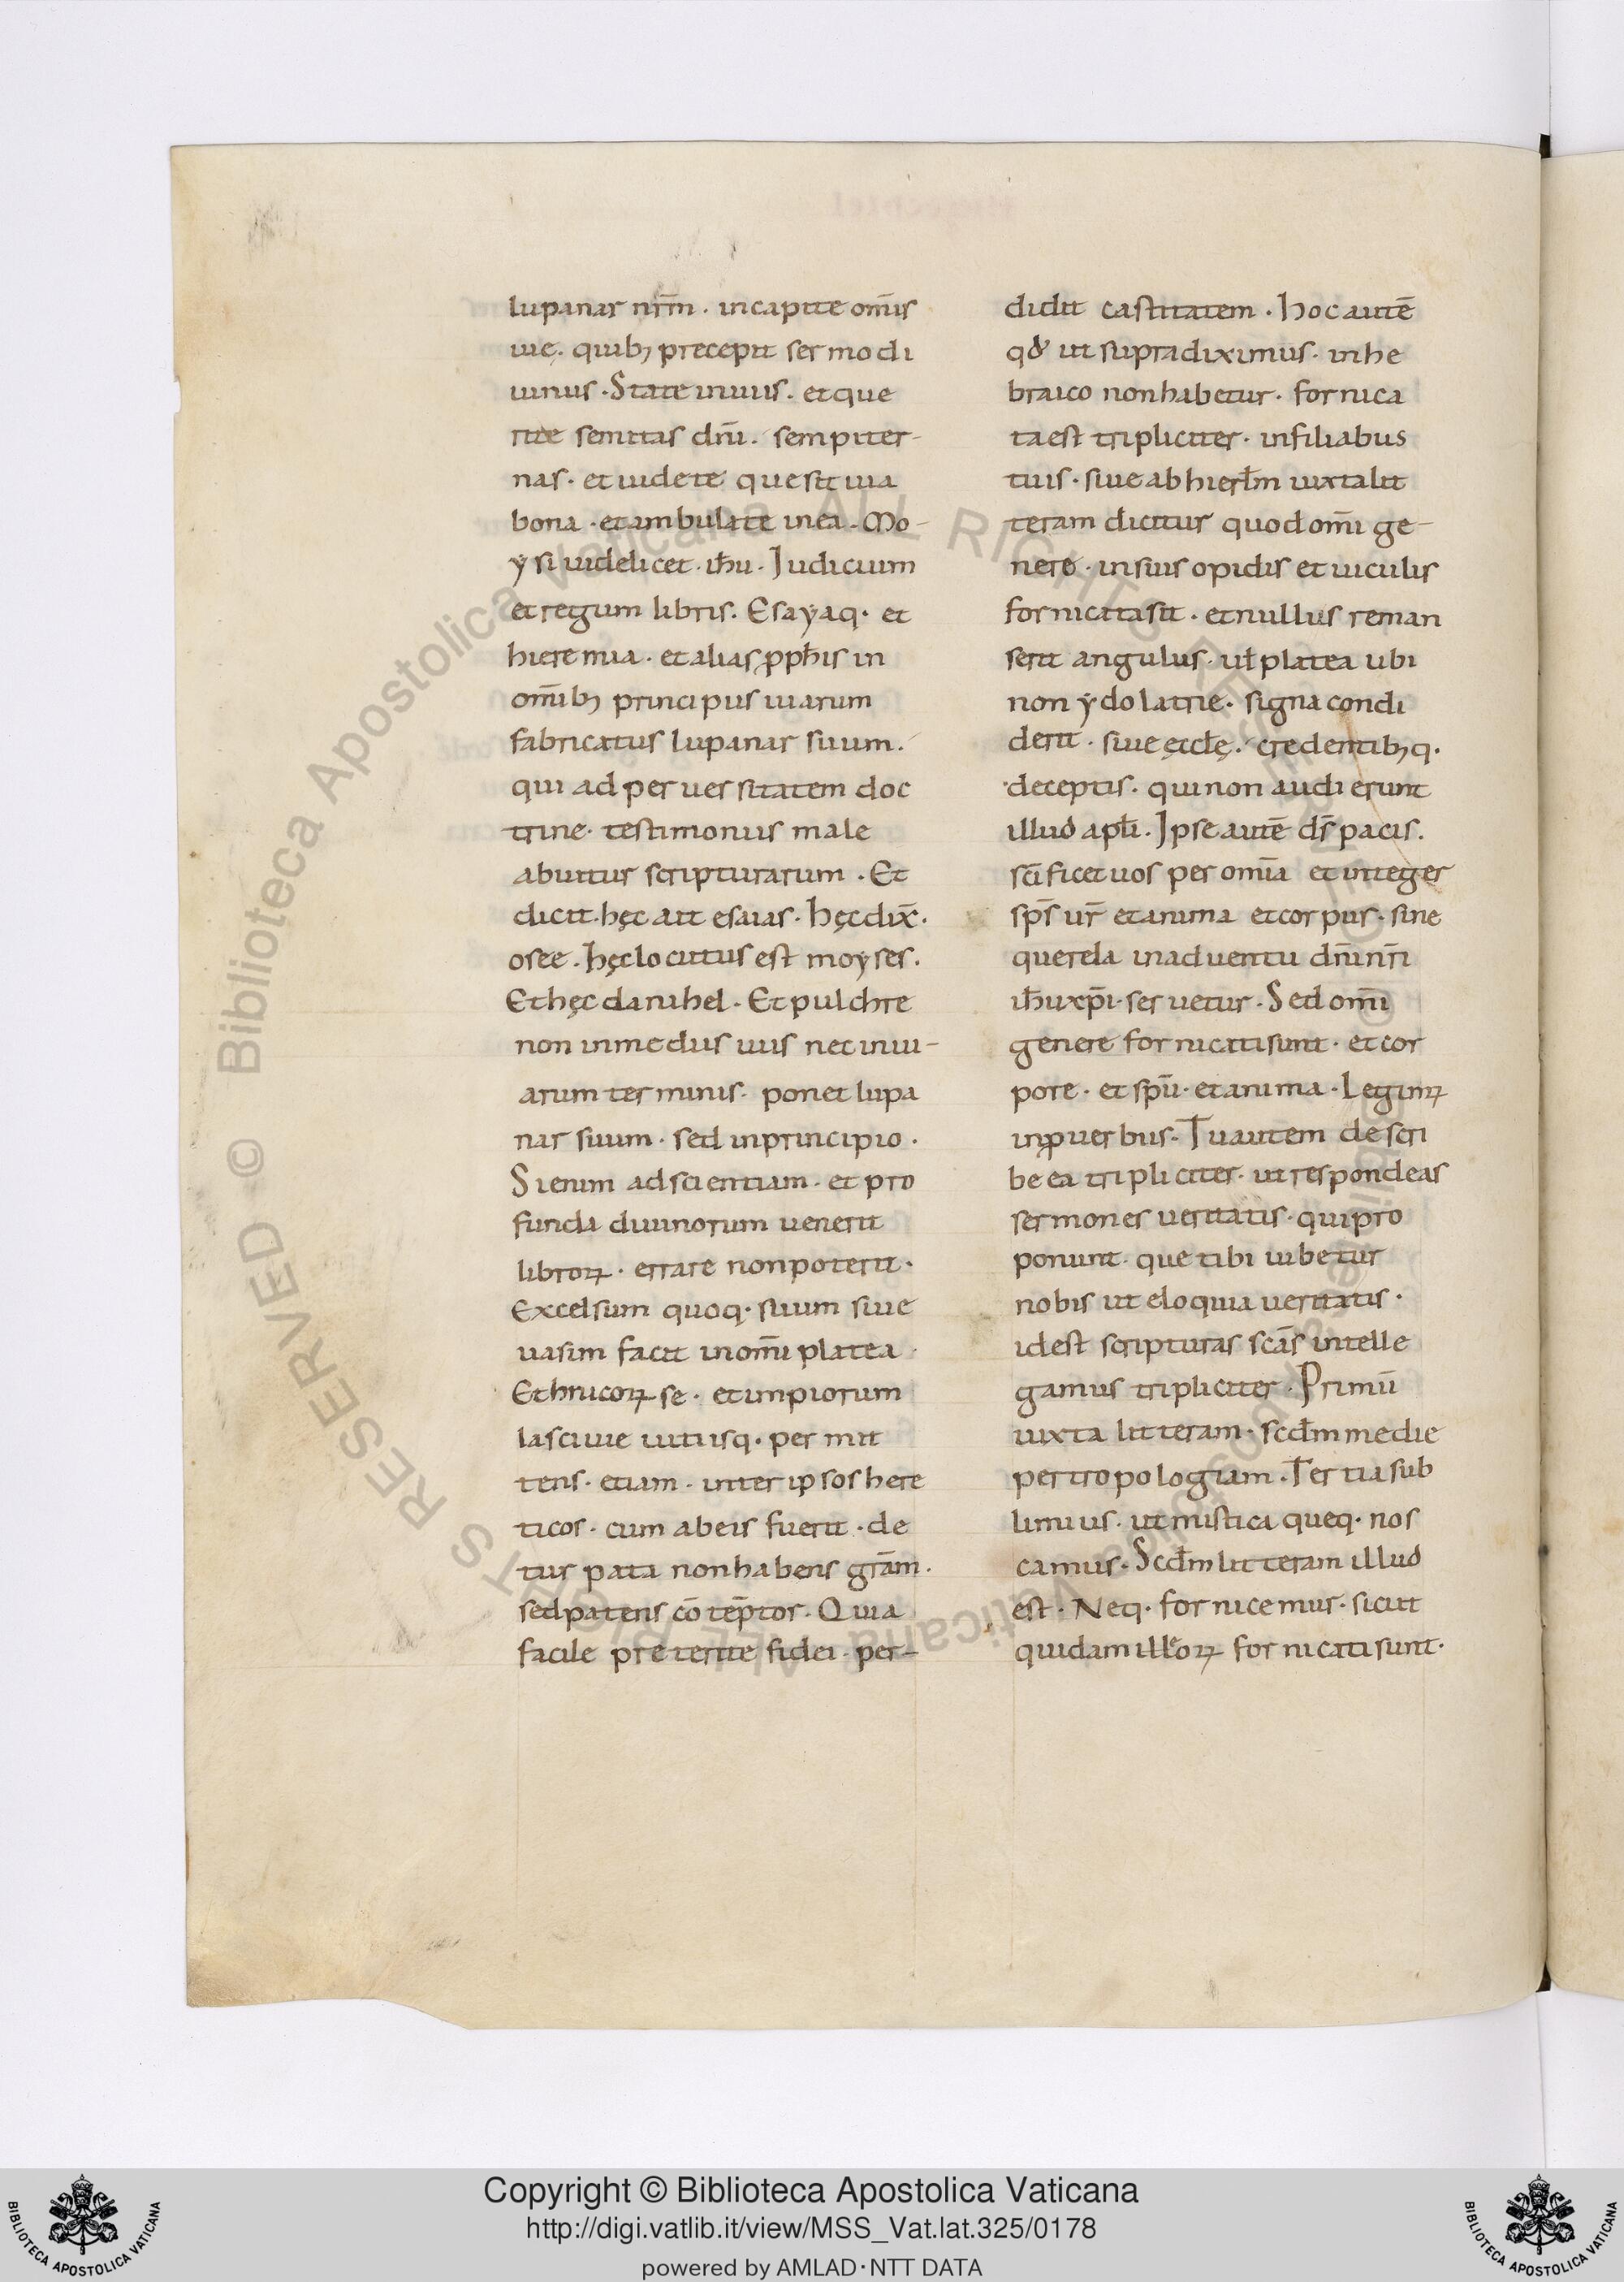 lupanar nr̄m · incapite om̄is
uie. quib; precepit sermo di
uinus · State inuiis. etque
rite semitas dn̄i. sempiter-
nas · et uidete que sit uia
bona · et ambulate inea. Mo-
ysi uidelicet · ih̄u · Judicium
et regum libris. Esayaq· et
hieremia · et alias ꝓph̄is in
om̄ib; principiis uiarum
fabricatus lupanar suum.
qui ad peruersitatem doc
trine· testimoniis male
abutitur scripturarum · Et
dicit. hęc ait esaias · hęc dix̄.
osee. hęc locutus est moyses.
Et hęc danihel · Et pulchre
non inmediis uiis nec inui-
arum terminis· ponet lupa
nar suum · sed inprincipio ·
Si enim ad scientiam · et pro
funda diuinorum uenerit
libroꝝ · errare nonpoterit·
Excelsum quoq· suum siue
uasim facit inom̄i platea·
Ethnicoꝝ se· et impiorum
lasciuie uitiisq· per mit
tens· etiam · inter ipsos here
ticos · cum abeis fuerit · de
turpata nonhabens gr̄am.
sedpatens cō tēptor · Quia
facile preterite fidei · per-
didit castitatem · hoc autē
qđ ut supradiximus· inhe
braico nonhabetur· fornica
ta est tripliciter· infiliabus
tuis · siue ab hierłm iuxtalit
teram dicitur quodom̄i ge-
nere · insuis opidis et uiculis
fornicatasit · etnullus reman
serit angulus · uł platea ubi
non ydolatrie· signa condi
derit · siue ęccłę. credentib;q·
deceptis · quinon audierunt
illud apłi. Ipse autē ds̄ pacis.
sc̄ificet uos per om̄ia et integer
sps̄ ur̄ etanima et corpus · sine
querela inaduentu dn̄i nr̄i
ih̄u xp̄i · seruetur · Sed om̄i
genere fornicati sunt · et cor
pore · et spū · et anima · Legimꝰ
inꝓuerbiis · Tu autem descri
be ea tripliciter· ut respondeas
sermones ueritatis · quipro
ponunt· que tibi iubetur
nobis ut eloquia ueritatis·
idest scripturas scās intelle
gamus tripliciter · Primū
iuxta litteram· scđm medie
pertropologiam · Tertia sub
limius · ut mistica queq· nos
camus · Scđm litteram illud
est · Neq· fornicemur· sicut
quidam illeoꝝ fornicati sunt·
Copyright © Biblioteca Apostolica Vaticana
http://digi.vatlib.it/view/MSS_Vat.lat.325/0178
powered by AMLAD·NTT DATA
BIBLIOTECA APOSTOLICA VATICANA
BIBLIOTECA APOSTOLICA VATICANA